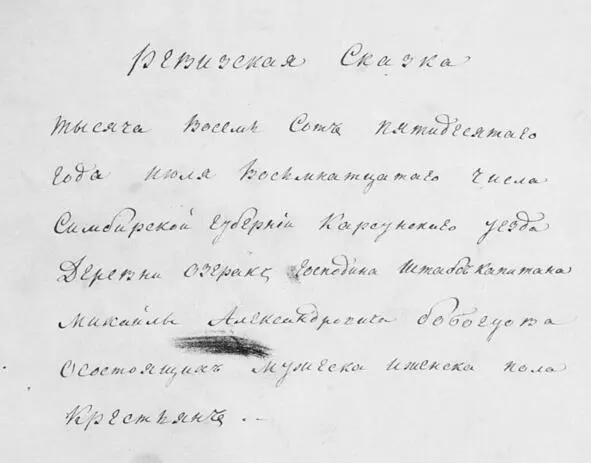 Ревизская Сказка
тысяча восемь сотъ пятидесятаго
года июля восемнатцатаго числа
Симбирской губерніи Карсунского уезда
деревни озеракъ господина штабскапитана
Михайлы Александровича
осостоящихъ мужеска иженска пола
Крестьянъ